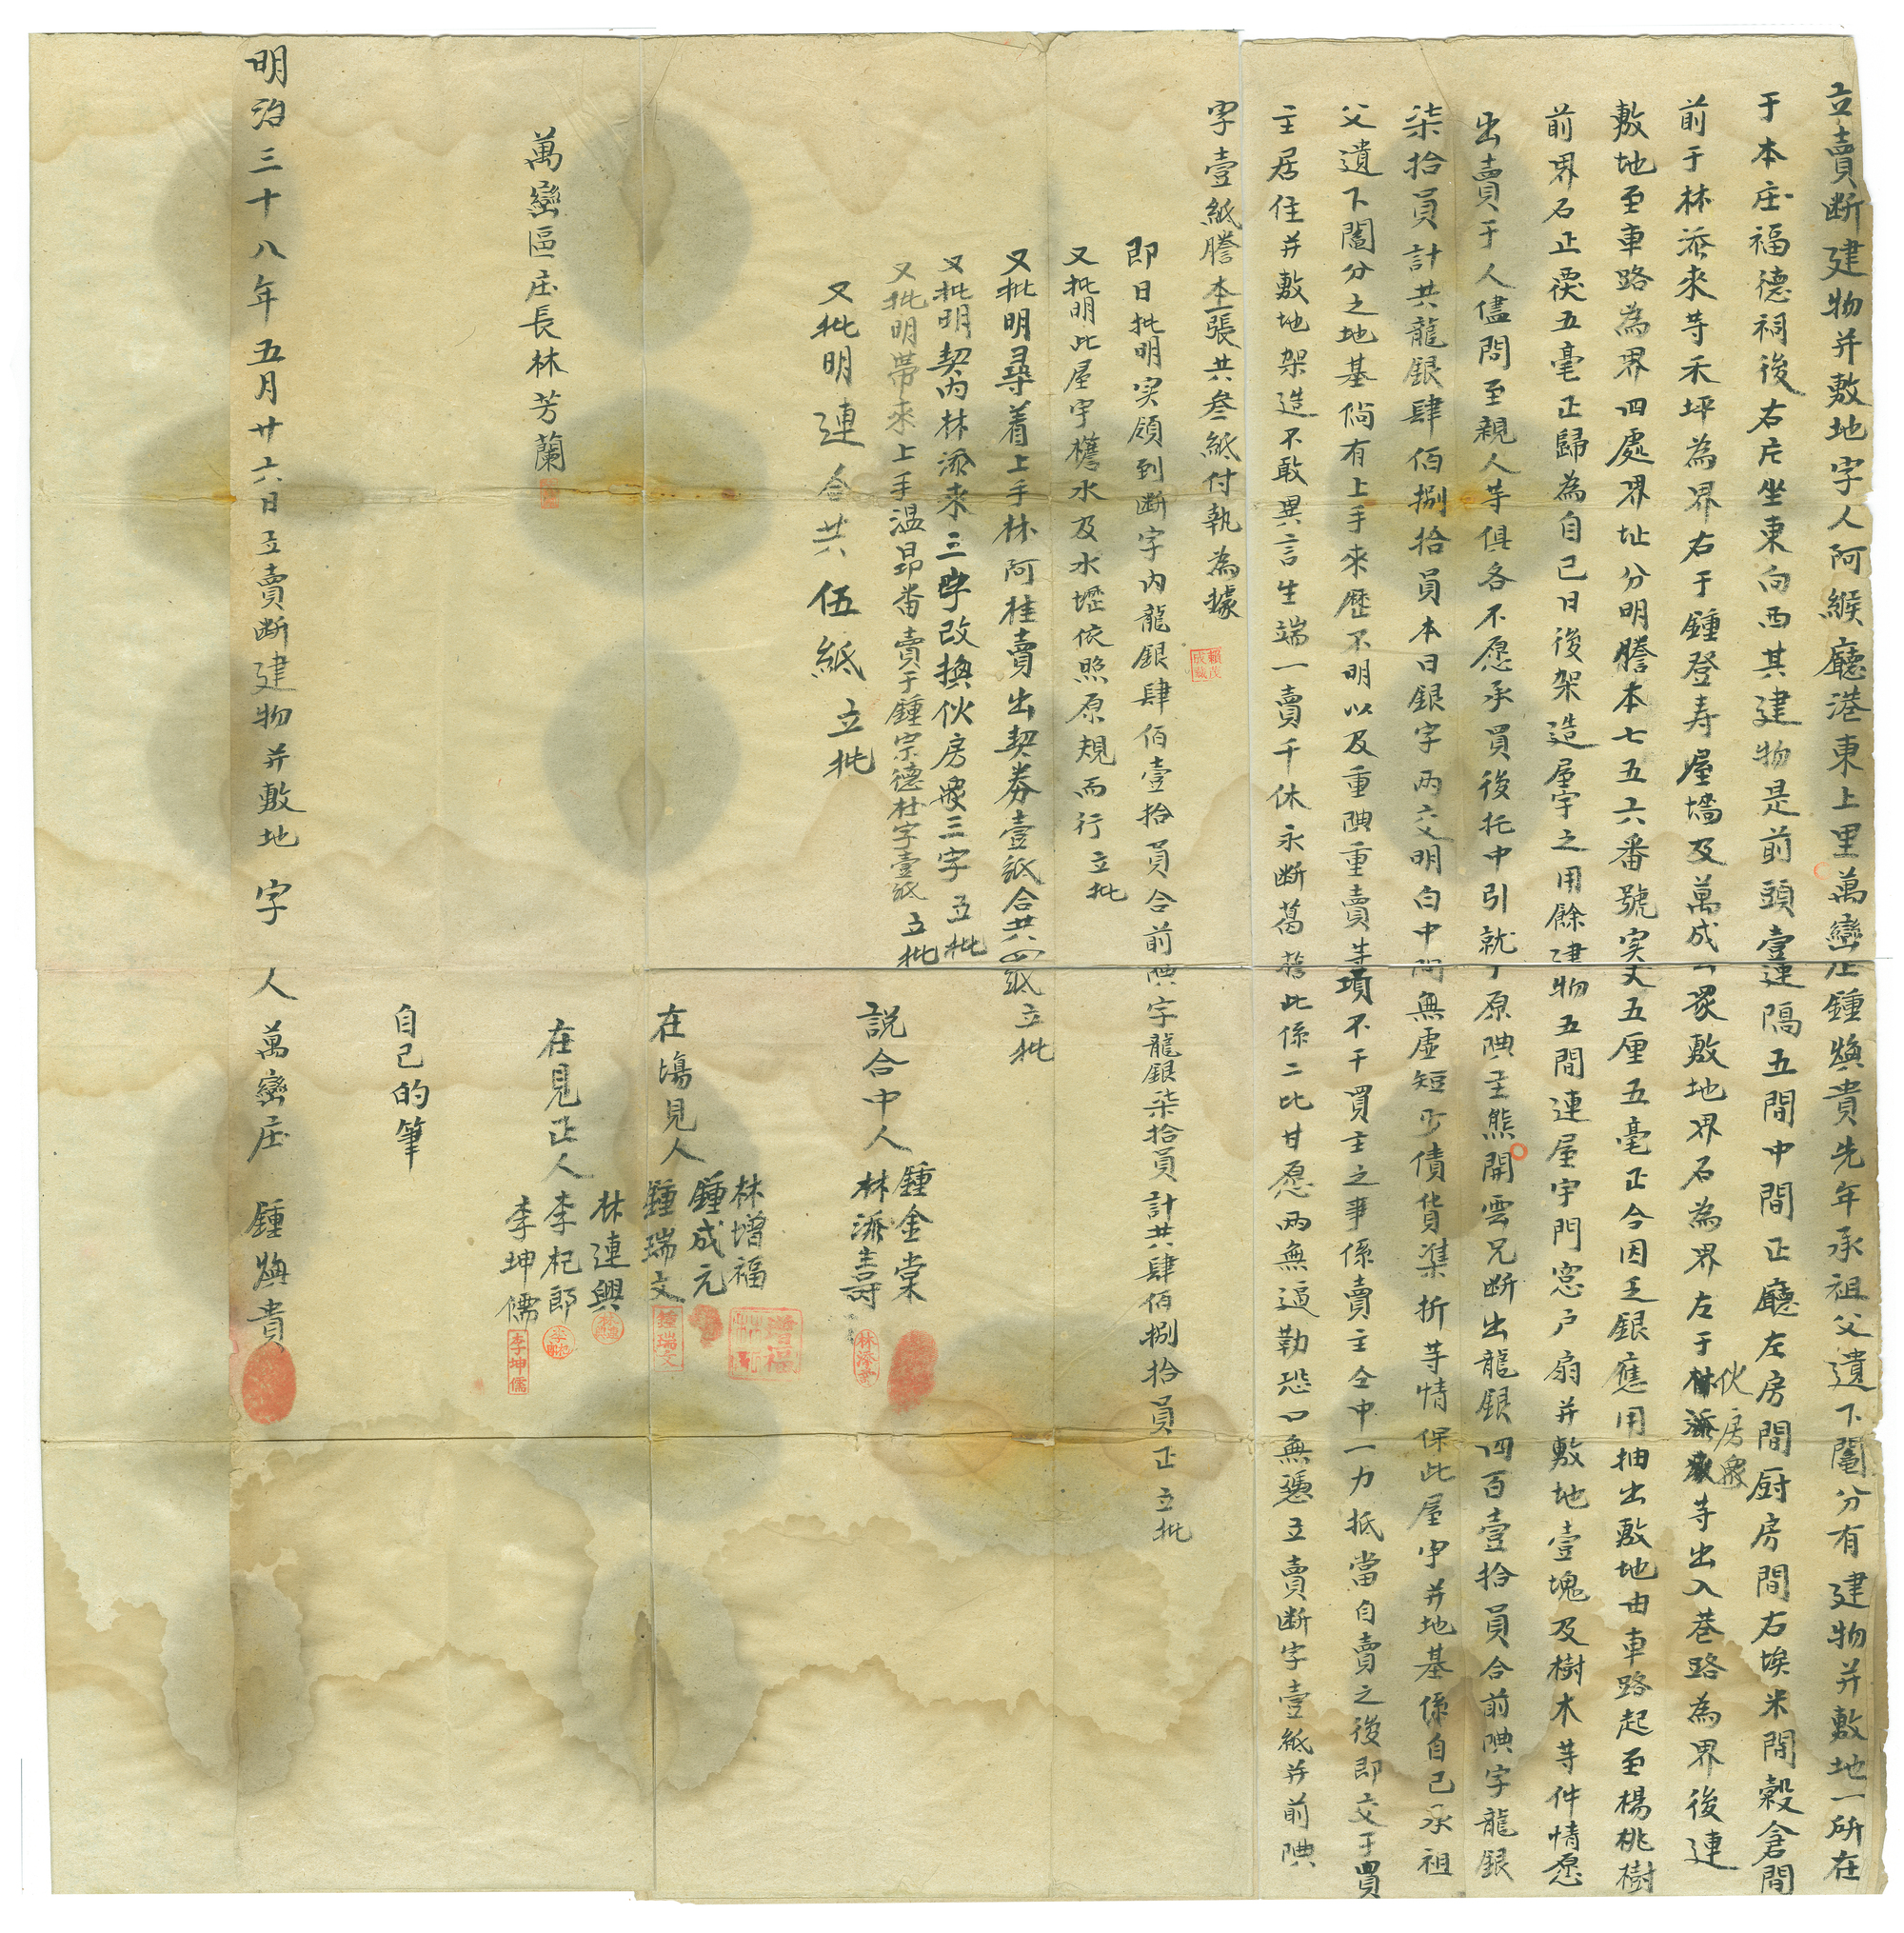 立賣断建物并敷地字人阿緱廳港東上里萬巒庄鍾煥貴先年承祖父遺下鬮分有建物并敷地一所在
于本庄福德祠後右片坐東向西其建物是前頭壹連隔五間中間正廳左房間厨房間右埃米間穀倉間
前于林添來等禾坪為界右于鍾登寿屋墻及萬成公眾敷地界石為界左于伙房眾等出入巷路為界後連
敷地至車路為界四處界址分明謄本七五六番號实丈五厘五毫正今因乏銀應用抽出敷地由車路起至楊桃樹
前界石止長五毫正歸為自己日後架造屋宇之用餘建物五間連屋宇門窓户扇并敷地壹塊及樹木等件情愿
出賣于人儘問至親人等俱各不愿承買後托中引就于原典主熊開雲兄断出龍銀四百壹拾員合前典字龍銀
柒拾員計共龍銀肆佰捌拾員本日銀字兩交明白中間無虛短少債貨準折等情保此屋宇并地基係自己承祖
父遺下鬮分之地基倘有上手來歷不明以及重典重賣等項不干買主之事係賣主仝中一力抵當自賣之後即交于買
主居住并敷地架造不敢異言生端一賣千休永断葛藤此係二比甘愿兩無逼勒恐口無憑立賣断字壹紙并前典
字壹紙謄本一張共叁紙付執為據
賴茂成
即日批明实領到断字內龍銀肆佰壹拾員合前典字龍銀柒拾員計共肆佰捌拾員正 立批
又批明此屋宇簷水及水壢依照原規而行 立批
又批明尋着上手林阿桂賣出契券壹紙合共四紙 立批
又批明契內林添來三字改換伙房眾三字 立批
又批明帶來上手温昂番賣于鍾宗德杜字壹紙 立批
又批明連合共伍紙 立批
說合中人 鍾金棠
林添壽
林添壽
在塲見人 林增福
鍾成元
鍾瑞文
增福
鍾瑞文
在見正人 林連興
李杞郎
李坤儒
李坤儒
萬巒區庄長林芳蘭
自己的筆
明治三十八年五月廿六日立賣断建物并敷地字人萬巒庄 鍾煥貴